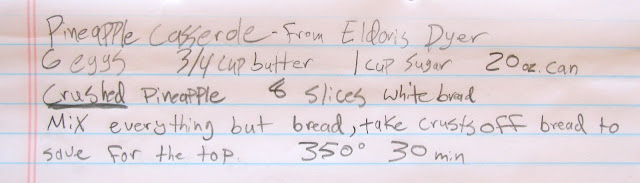 Pineapple Casserole - From Eldoris Dyer
6 eggs 3/4 cup butter 1 cup sugar 20 oz. can
Crushed Pineapple 8 slices white bread
Mix everything but bread, take crusts off bread to
save for the top. 350° 30 min